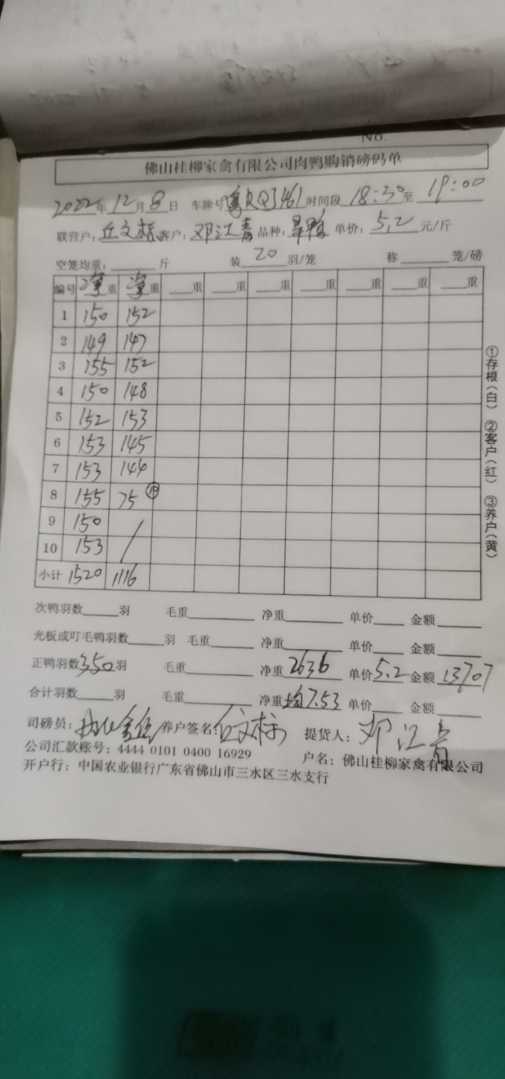 No.
佛山桂柳家禽有限公司肉鸭购销磅码单
2022年 12月 8日 车牌号 粤 时间段 18:30至 19:00
联营户: 丘文标 客户: 邓江青 品种: 单价: 5.2 元/斤
空笼均重: 斤 装 20 羽/笼 称 笼/磅
编号 净重 净重 重 重 重 重 重 重
1 150 152
2 149 147
3 155 152
4 150 148
5 152 153
6 153 145
7 153 144
8 155 75 ⑩
9 150 /
10 153 /
小计 1520 1116
次鸭羽数 羽 毛重 净重 单价 金额
光板或叮毛鸭羽数 羽 毛重 净重 单价 金额
正鸭羽数350羽 毛重 净重 2636 单价5.2 金额 13707
合计羽数 羽 毛重 净重 均7.53 单价 金额
司磅员: 养户签名: 丘文标 提货人: 邓江青
公司汇款账号: 4444 0101 0400 16929 户名: 佛山桂柳家禽有限公司
开户行: 中国农业银行广东省佛山市三水区三水支行
①存根(白) ②客户(红) ③养户(黄)